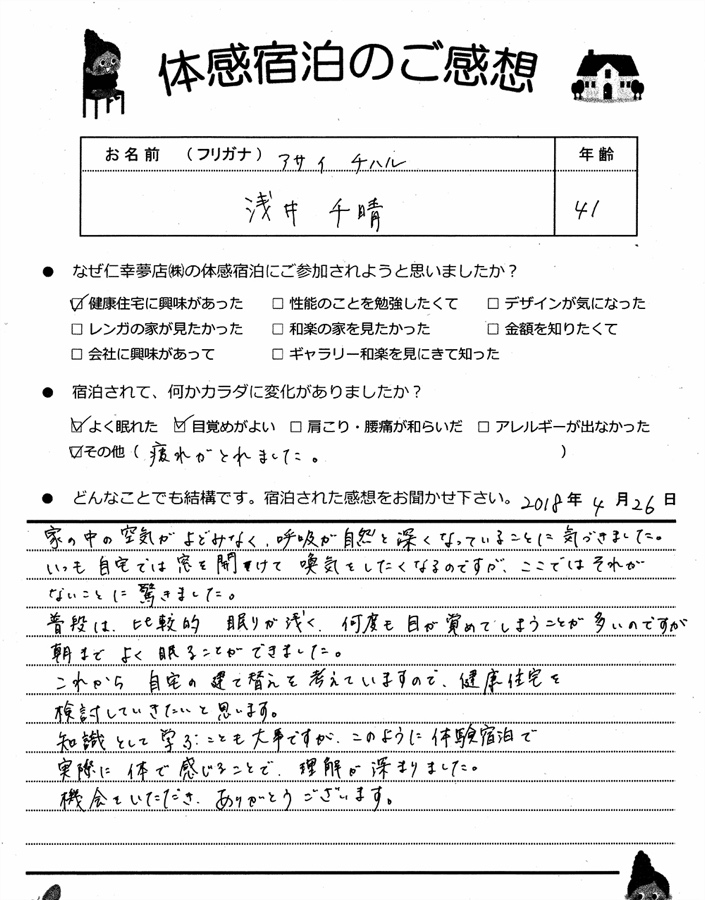 体感宿泊のご感想
お名前 （フリガナ） アサイ チハル 年齢
浅井 千晴 41
● なぜ仁幸夢店㈱の体感宿泊にご参加されようと思いましたか？
☑ 健康住宅に興味があった □ 性能のことを勉強したくて □ デザインが気になった
□ レンガの家が見たかった □ 和楽の家を見たかった □ 金額を知りたくて
□ 会社に興味があって □ ギャラリー和楽を見にきて知った
● 宿泊されて、何かカラダに変化がありましたか？
☑ よく眠れた ☑ 目覚めがよい □ 肩こり・腰痛が和らいだ □ アレルギーが出なかった
☑ その他（ 疲れがとれました。 ）
● どんなことでも結構です。宿泊された感想をお聞かせ下さい。 2018年 4月26日
家の中の空気がよどみなく、呼吸が自然と深くなっていることに気づきました。
いつも自宅では窓を開けて換気をしたくなるのですが、ここではそれが
ないことに驚きました。
普段は、比較的 眠りが浅く、何度も目が覚めてしまうことが多いのですが
朝までよく眠ることができました。
これから 自宅の建て替えを考えていますので、健康住宅を
検討していきたいと思います。
知識として学ぶことも大事ですが、このように体験宿泊で
実際に体で感じることで、理解が深まりました。
機会をいただき、ありがとうございます。